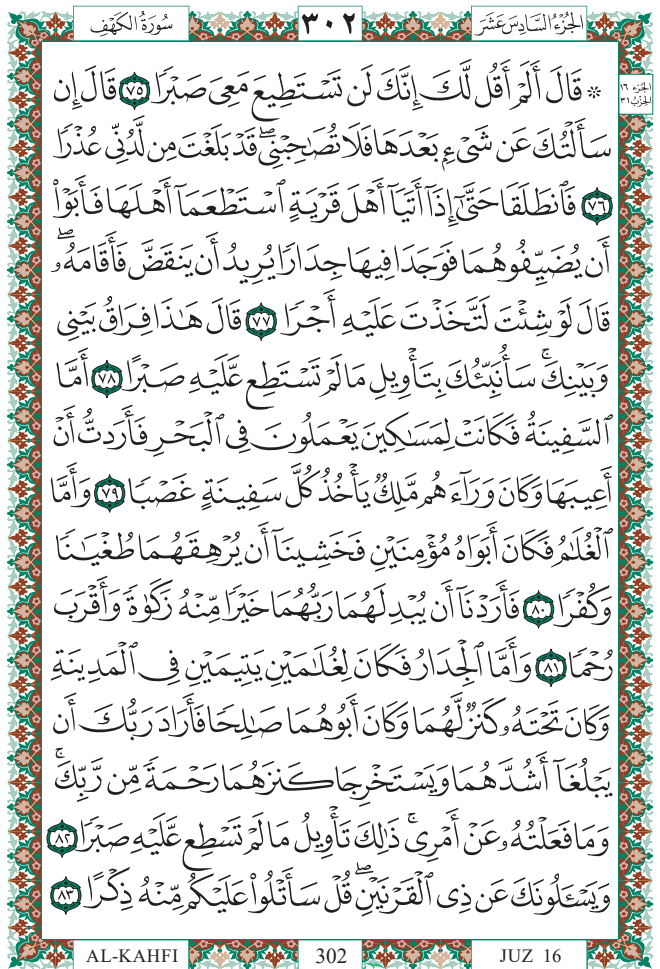 الجُزْءُ السَّادِسَ عَشَرَ ٣٠٢ سُورَةُ الكَهْفِ
الجزء ١٦
الحزب ٣١
۞ قَالَ أَلَمْ أَقُل لَّكَ إِنَّكَ لَن تَسْتَطِيعَ مَعِىَ صَبْرًا ٧٥ قَالَ إِن
سَأَلْتُكَ عَن شَىْءٍۭ بَعْدَهَا فَلَا تُصَٰحِبْنِى ۖ قَدْ بَلَغْتَ مِن لَّدُنِّى عُذْرًا
٧٦ فَٱنطَلَقَا حَتَّىٰٓ إِذَآ أَتَيَآ أَهْلَ قَرْيَةٍ ٱسْتَطْعَمَآ أَهْلَهَا فَأَبَوْا۟
أَن يُضَيِّفُوهُمَا فَوَجَدَا فِيهَا جِدَارًا يُرِيدُ أَن يَنقَضَّ فَأَقَامَهُۥ ۖ
قَالَ لَوْ شِئْتَ لَتَّخَذْتَ عَلَيْهِ أَجْرًا ٧٧ قَالَ هَٰذَا فِرَاقُ بَيْنِى
وَبَيْنِكَ ۚ سَأُنَبِّئُكَ بِتَأْوِيلِ مَا لَمْ تَسْتَطِع عَّلَيْهِ صَبْرًا ٧٨ أَمَّا
ٱلسَّفِينَةُ فَكَانَتْ لِمَسَٰكِينَ يَعْمَلُونَ فِى ٱلْبَحْرِ فَأَرَدتُّ أَنْ
أَعِيبَهَا وَكَانَ وَرَآءَهُم مَّلِكٌ يَأْخُذُ كُلَّ سَفِينَةٍ غَصْبًا ٧٩ وَأَمَّا
ٱلْغُلَٰمُ فَكَانَ أَبَوَاهُ مُؤْمِنَيْنِ فَخَشِينَآ أَن يُرْهِقَهُمَا طُغْيَٰنًا
وَكُفْرًا ٨٠ فَأَرَدْنَآ أَن يُبْدِلَهُمَا رَبُّهُمَا خَيْرًا مِّنْهُ زَكَوٰةً وَأَقْرَبَ
رُحْمًا ٨١ وَأَمَّا ٱلْجِدَارُ فَكَانَ لِغُلَٰمَيْنِ يَتِيمَيْنِ فِى ٱلْمَدِينَةِ
وَكَانَ تَحْتَهُۥ كَنزٌ لَّهُمَا وَكَانَ أَبُوهُمَا صَٰلِحًا فَأَرَادَ رَبُّكَ أَن
يَبْلُغَآ أَشُدَّهُمَا وَيَسْتَخْرِجَا كَنزَهُمَا رَحْمَةً مِّن رَّبِّكَ ۚ
وَمَا فَعَلْتُهُۥ عَنْ أَمْرِى ۚ ذَٰلِكَ تَأْوِيلُ مَا لَمْ تَسْطِع عَّلَيْهِ صَبْرًا ٨٢
وَيَسْـَٔلُونَكَ عَن ذِى ٱلْقَرْنَيْنِ ۖ قُلْ سَأَتْلُوا۟ عَلَيْكُم مِّنْهُ ذِكْرًا ٨٣
AL-KAHFI 302 JUZ 16